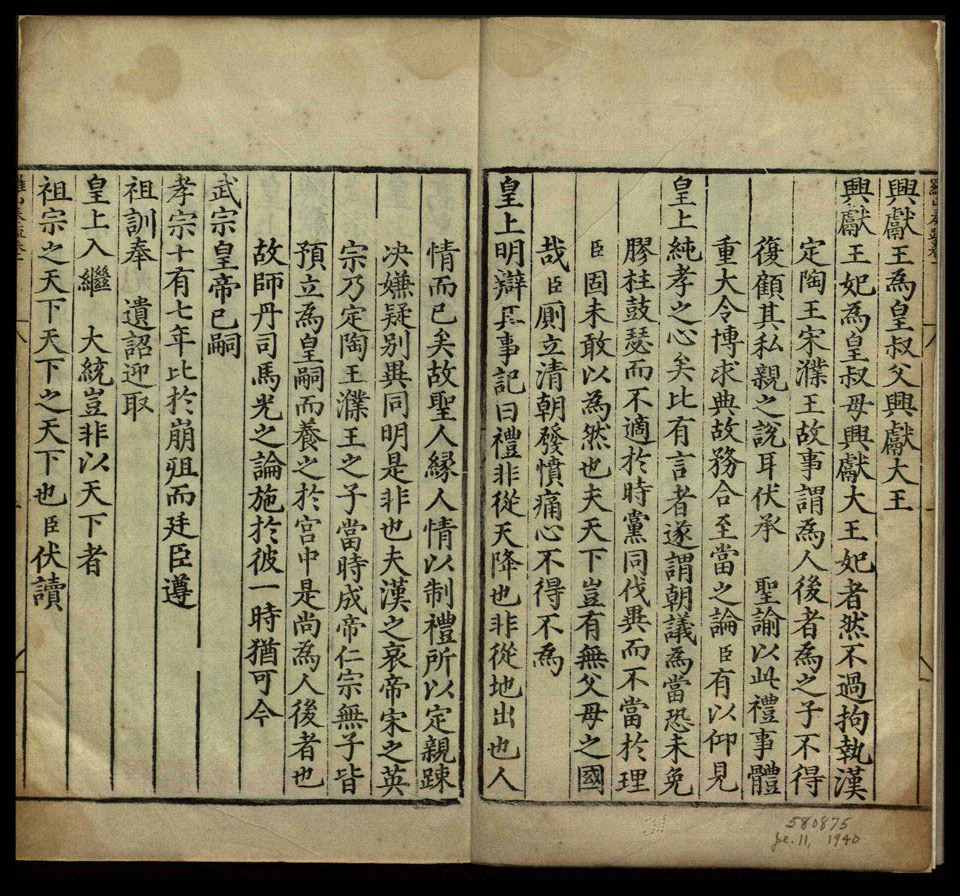 興獻王為皇叔父興獻大王
興獻王妃為皇叔母興獻大王妃者然不過拘執漢
定陶王宋濮王故事謂為人後者為之子不得
復顧其私親之說耳伏承 聖諭以此禮事體
重大令博求典故務合至當之論臣有以仰見
皇上純孝之心矣比有言者遂謂朝議為當恐未免
膠柱鼓瑟而不適於時黨同伐異而不當於理
臣固未敢以為然也夫天下豈有無父母之國
哉臣厠立清朝發憤痛心不得不為
皇上明辯其事記曰禮非從天降也非從地出也人
情而已矣故聖人緣人情以制禮所以定親踈
决嫌疑別異同明是非也夫漢之哀帝宋之英
宗乃定陶王濮王之子當時成帝仁宗無子皆
預立為皇嗣而養之於宮中是尚為人後者也
故師丹司馬光之論施於彼一時猶可今
武宗皇帝已嗣
孝宗十有七年比於崩殂而廷臣遵
祖訓奉 遺詔迎取
皇上入繼 大統豈非以天下者
祖宗之天下天下之天下也臣伏讀
580875
Je. 11, 1940